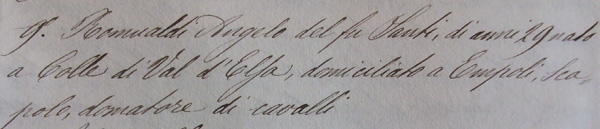 9.º Romualdi Angelo del fu Santi, di anni 29 nato
a Colle di Val d'Elsa, domiciliato a Empoli, sca-
polo, domatore di cavalli